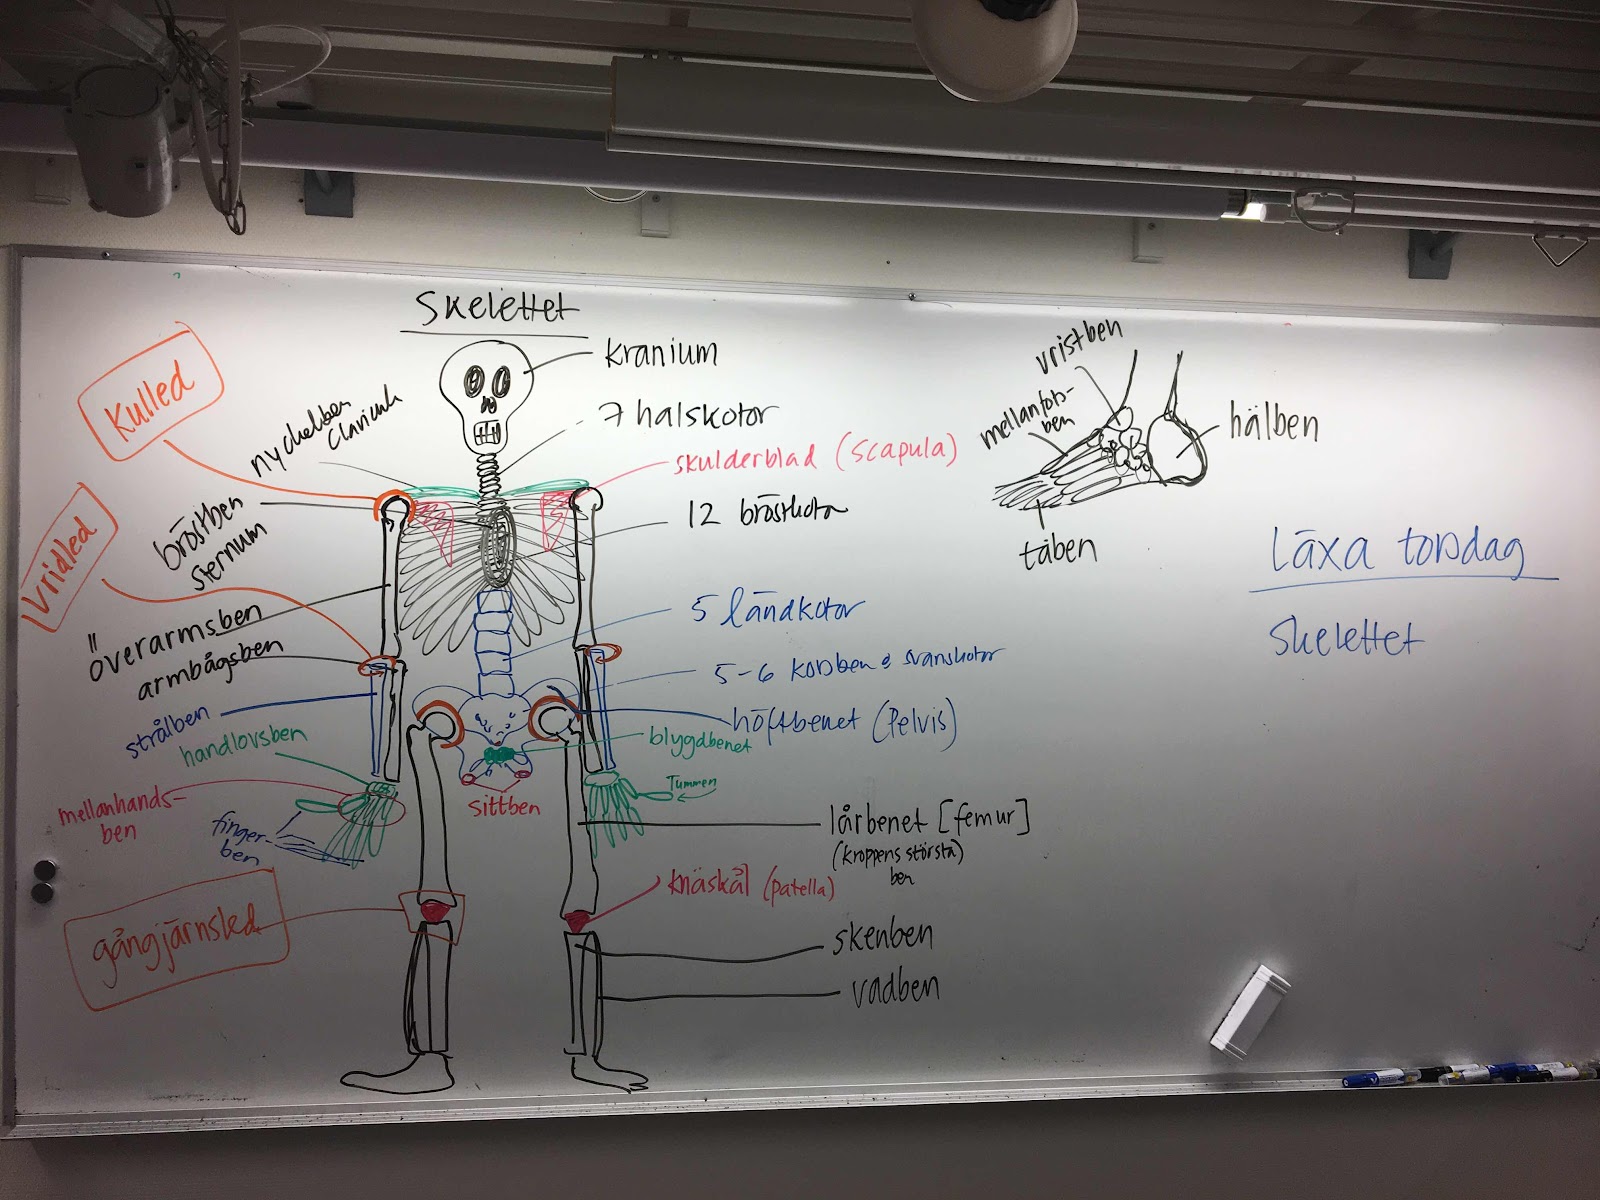 Skelettet
kranium
7 halskotor
skulderblad (scapula)
12 bröstkotor
5 ländkotor
5-6 korsben & svanskotor
höftbenet (Pelvis)
blygdbenet
Tummen
sittben
lårbenet [femur]
(kroppens största)
ben
knäskål (patella)
skenben
vadben
Kulled
nyckelben
Clavicula
bröstben
sternum
Vridled
Överarmsben
armbågsben
strålben
handlovsben
mellanhands-
ben
finger-
ben
gångjärnsled
vristben
mellanfots-
ben
hälben
tåben
Läxa torsdag
Skelettet